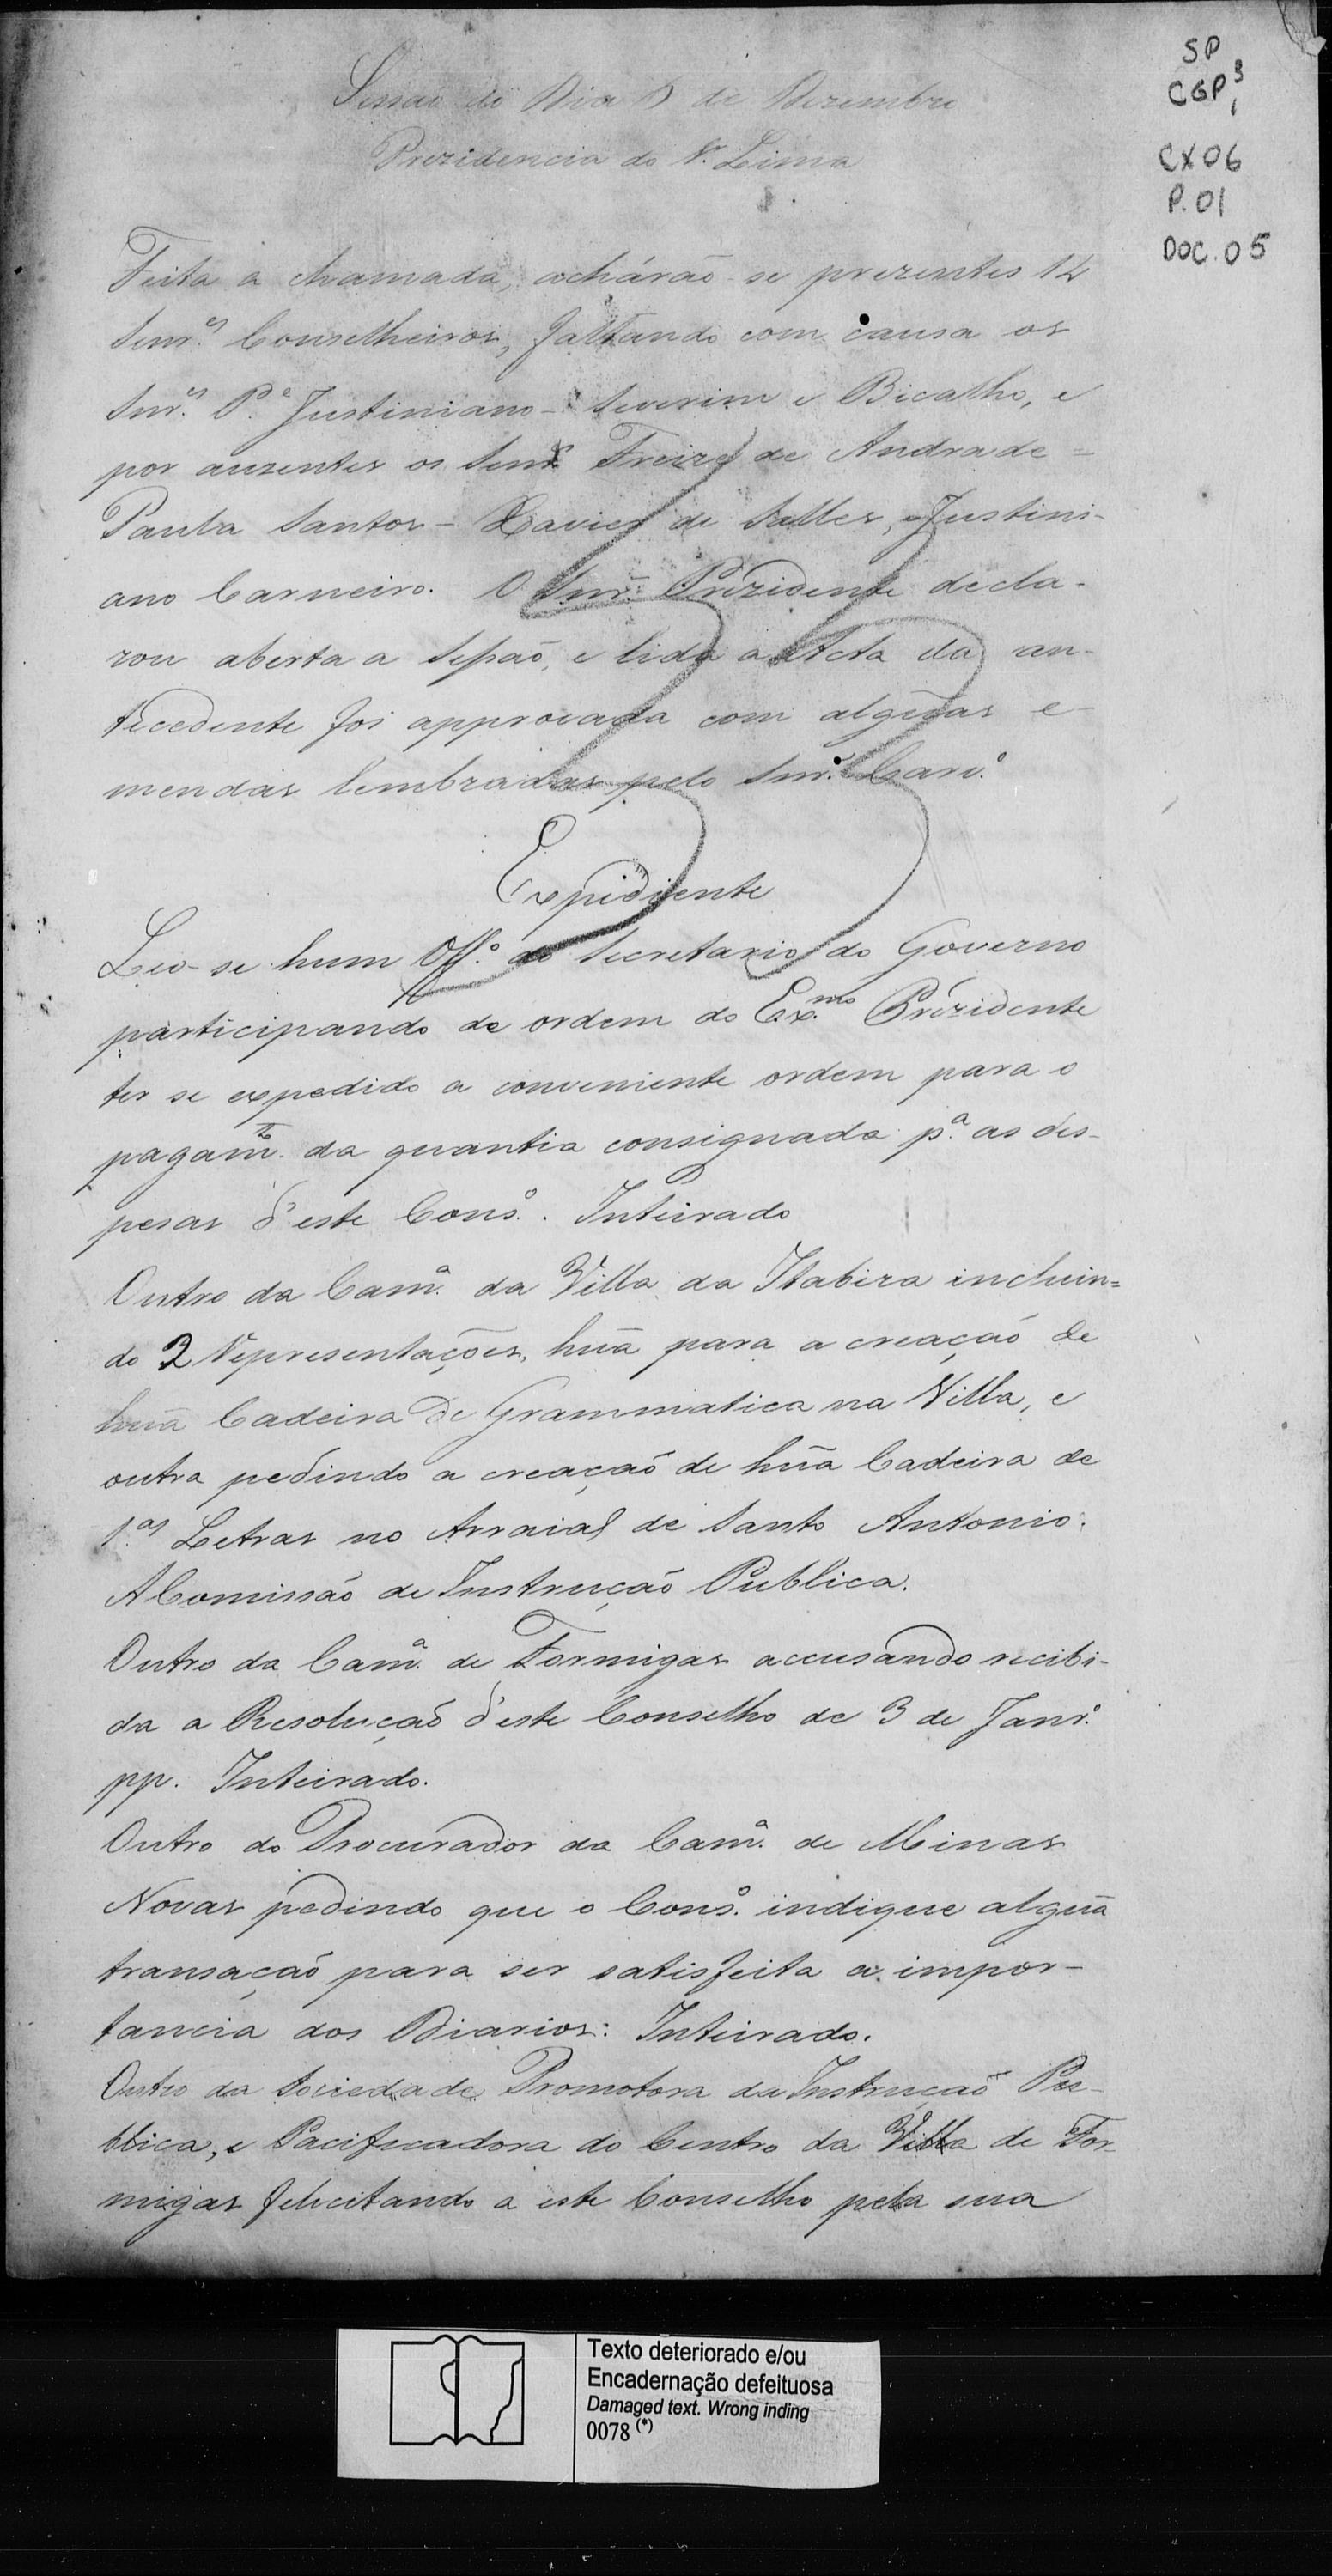 SP
CGP³ 1
CX 06
P. 01
DOC. 05
Sessaõ do Dia de Dezembro
Prezidencia do Lima
Feita a chamada, achárão-se prezentes 14
Senr.es Conselheiros, faltando com causa os
Snr.es P.e Justiniano - Severim e Bicalho, e
por auzentes os Senr.s Freire de Andrade =
Paula Santos - Xavier de Salles, Justini-
ano Carneiro. O Snr. Prezidente decla-
rou aberta a Seſsaõ, e lida a Acta da an-
tecedente foi approvada com algũas e-
mendas lembradas pelo Snr.
Expidiente
Leo-se hum Off.o do Secretario do Governo
participando de ordem do Ex.mo Prezidente
ter se expedido a conveniente ordem para o
pagam.to da quantia consignada p.a as des-
pesas d'este Cons.o. Inteirado
Outro da Cam.a da Villa da Itabira incluin=
do 2 Representações, hũa para a creaçaõ de
hũa Cadeira de Grammatica na Villa, e
outra pedindo a creaçaõ de hũa Cadeira de
1.as Letras no Arraial de Santo Antonio.
A Comissão de Instrucçaõ Publica.
Outro da Cam.a de Formigas accusando recibi-
da a Resoluçaõ d'este Conselho de 3 de Janr.o
pp. Inteirado.
Outro do Procurador da Cam.a de Minas
Novas pedindo que o Cons.o indique algũa
transaçaõ para ser satisfeita a impor-
tancia dos Diarios: Inteirado.
Outro da Sociedade Promotora da Instruçaõ Pu-
blica, e Pacificadora do Centro da Villa de For-
migas felicitando a este Conselho pela sua
Texto deteriorado e/ou
Encadernação defeituosa
Damaged text. Wrong inding
0078 (*)